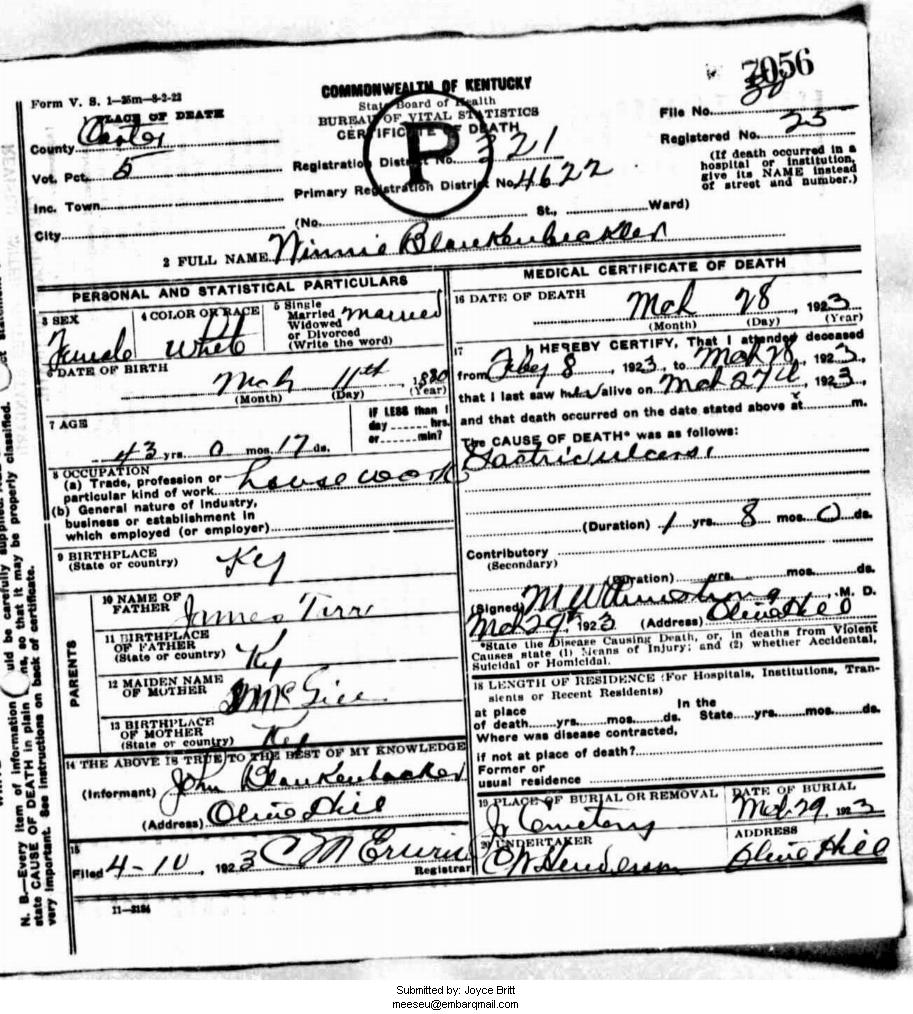 7056
Form V. S. 1—25m—8-2-22
COMMONWEALTH OF KENTUCKY
State Board of Health
BUREAU OF VITAL STATISTICS
CERTIFICATE OF DEATH
P
PLACE OF DEATH
County Carter
Vot. Pct. 5
Inc. Town
City
File No.
Registered No. 25
(If death occurred in a hospital or institution, give its NAME instead of street and number.)
Registration District No. 321
Primary Registration District No. 4622
(No. St., Ward)
2 FULL NAME Winnie Blankenbeckler
PERSONAL AND STATISTICAL PARTICULARS
3 SEX Female
4 COLOR OR RACE White
5 Single Married Widowed or Divorced (Write the word) married
6 DATE OF BIRTH Mch 11th, 1880
(Month) (Day) (Year)
7 AGE 43 yrs. 0 mos. 17 ds.
IF LESS than 1 day hrs. or min?
8 OCCUPATION
(a) Trade, profession or particular kind of work housework
(b) General nature of industry, business or establishment in which employed (or employer)
9 BIRTHPLACE (State or country) Ky
PARENTS
10 NAME OF FATHER James
11 BIRTHPLACE OF FATHER (State or country) Ky
12 MAIDEN NAME OF MOTHER
13 BIRTHPLACE OF MOTHER (State or country) Ky
14 THE ABOVE IS TRUE TO THE BEST OF MY KNOWLEDGE
(Informant) John Blankenbaker
(Address) Olive Hill
15
Filed 4-10, 1923 C M Registrar
11—3184
MEDICAL CERTIFICATE OF DEATH
16 DATE OF DEATH Mch 28, 1923
(Month) (Day) (Year)
17 I HEREBY CERTIFY, That I attended deceased
from Feby 8, 1923, to Mch 28, 1923,
that I last saw her alive on Mch 27th, 1923,
and that death occurred on the date stated above at m.
The CAUSE OF DEATH* was as follows:
Gastric ulcers.
(Duration) 1 yrs. 8 mos. 0 ds.
Contributory
(Secondary)
(Duration) yrs. mos. ds.
(Signed) M W Armstrong, M. D.
Mch 29th, 1923 (Address) Olive Hill
*State the Disease Causing Death, or, in deaths from Violent
Causes state (1) Means of Injury; and (2) whether Accidental,
Suicidal or Homicidal.
18 LENGTH OF RESIDENCE (For Hospitals, Institutions, Transients or Recent Residents)
at place of death yrs. mos. ds. In the State yrs. mos. ds.
Where was disease contracted,
if not at place of death?
Former or
usual residence
19 PLACE OF BURIAL OR REMOVAL Cemetery
DATE OF BURIAL Mch 29 1923
20 UNDERTAKER Henderson
ADDRESS Olive Hill
N. B.—Every item of information
state CAUSE OF DEATH in plain
very important. See instructions on back of certificate.
uld be carefully supplied.
so that it may be properly classified.
Submitted by: Joyce Britt
meeseu@embarqmail.com